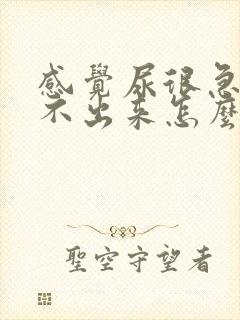 感覺尿很急
不出來怎麼
聖空守望者